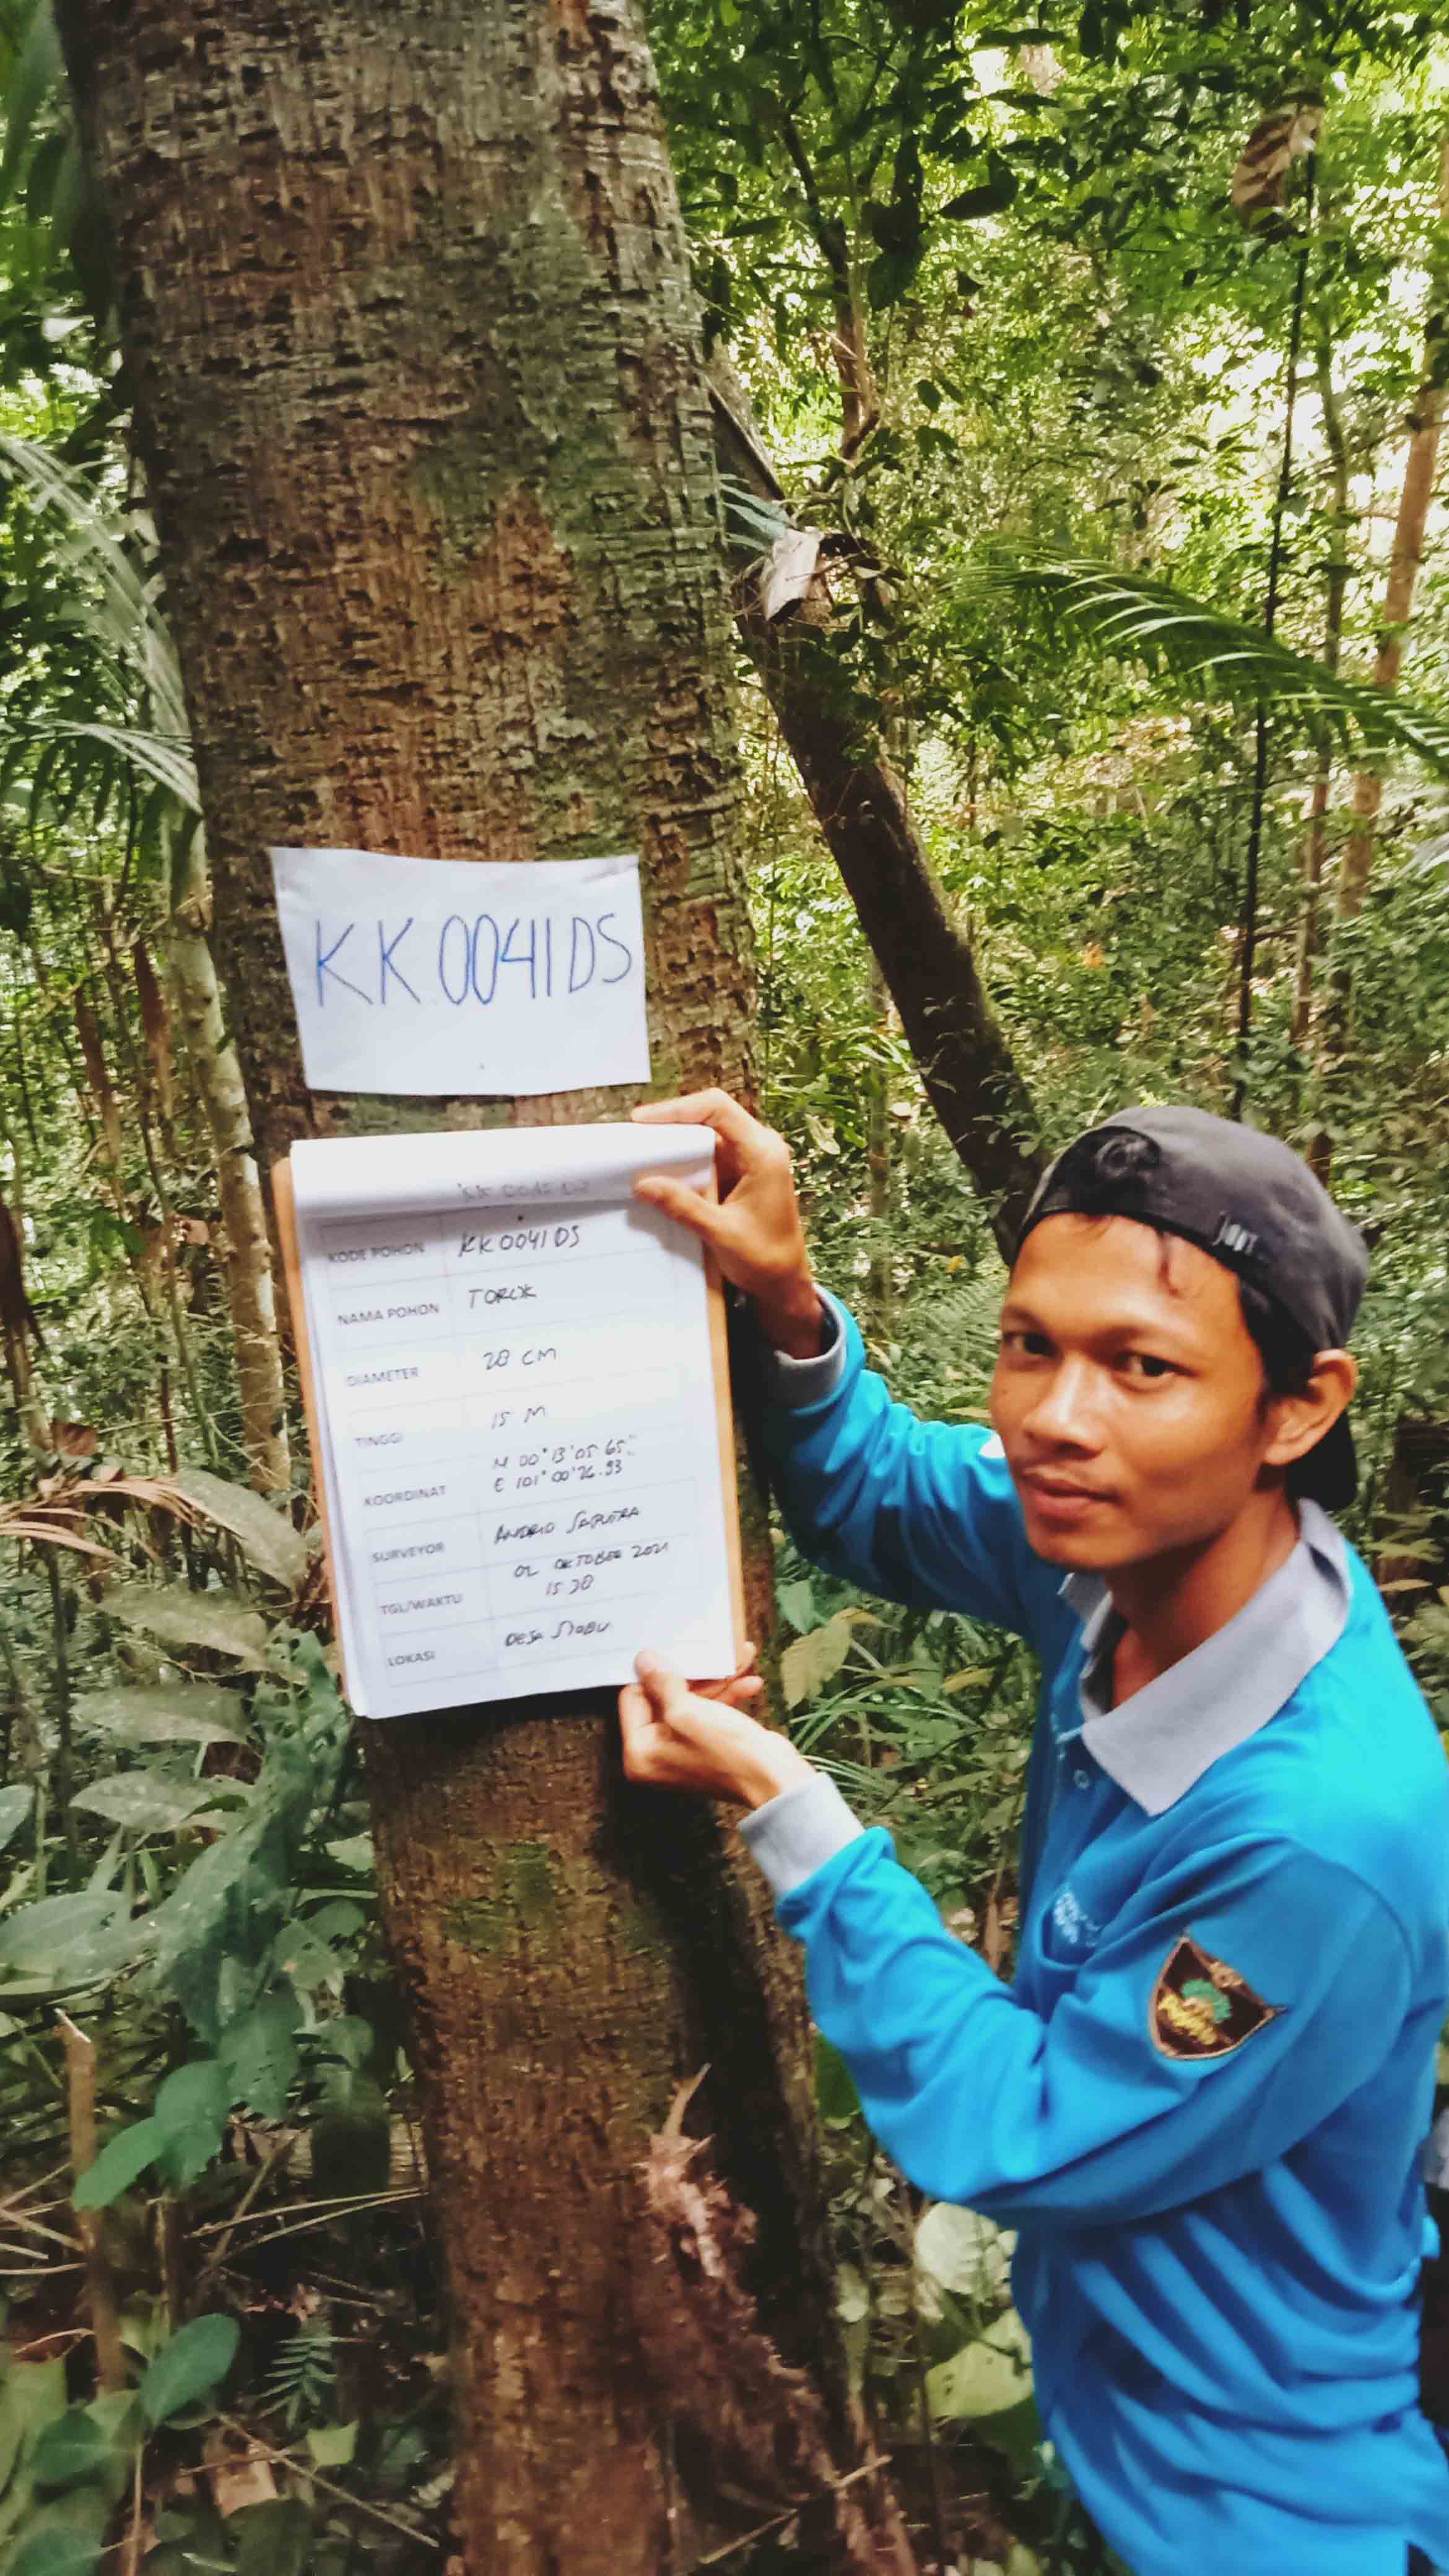 KK.0041DS
KODE POHON KK 0041 DS
NAMA POHON TOROK
DIAMETER 28 CM
TINGGI 15 M
KOORDINAT N 00° 13' 05.65"
E 101° 00' 26.93
SURVEYOR ANDRIO SAPUTRA
TGL/WAKTU 02 OKTOBER 2021
15 30
LOKASI DESA